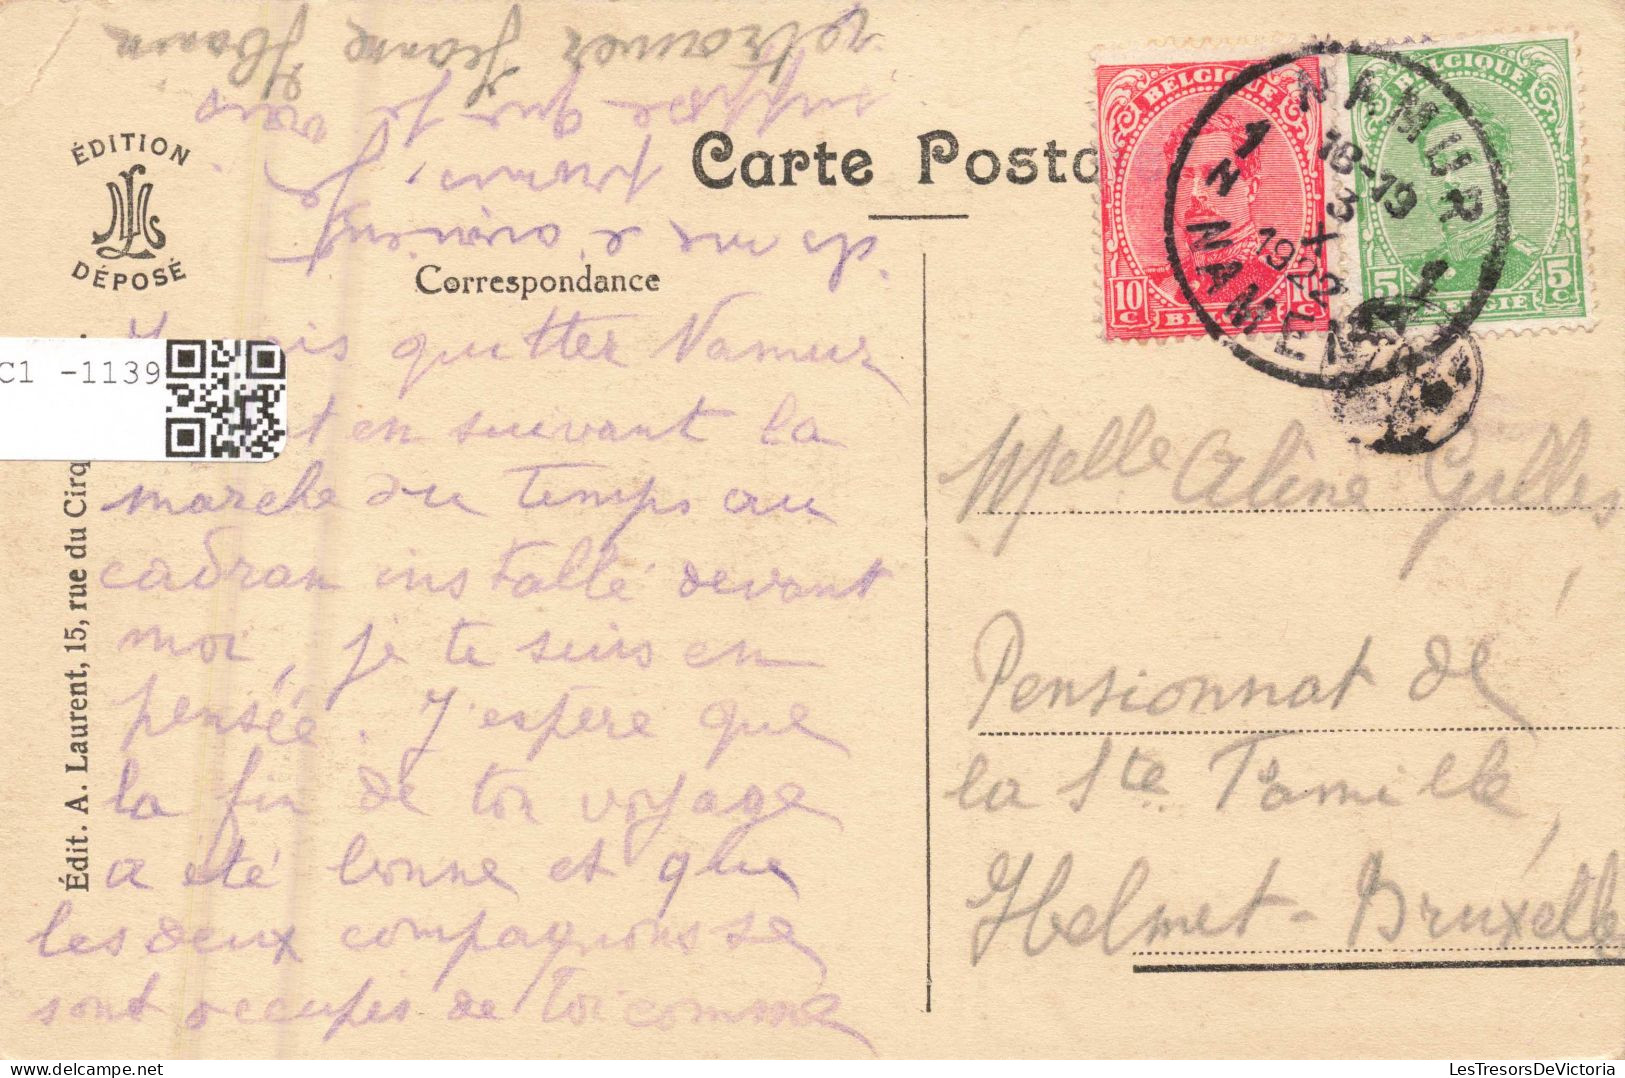 ÉDITION
DÉPOSÉ
Édit. A. Laurent, 15, rue du Cirq
C1 -1139
Carte Posta
Correspondance
BELGIQUE
10 C
1 C
BELGIË
BELGIQUE
5 C
5 C
BELGIË
NAMUR 1
18-19
3 X
1922
1 H NAMEN
quitter Namur
et en suivant la
marche du temps au
cadran installé devant
moi, je te suis en
pensée. J'espère que
la fin de ton voyage
a été bonne et que
les deux compagnons se
sont occupés de toi comme
ils me l'avaient
promis. Je
suppose que je vais
retrouver Jeanne
Melle Aline Gilles,
Pensionnat de
la Ste Famille,
Helmet-Bruxelle
LesTresorsDeVictoria.com